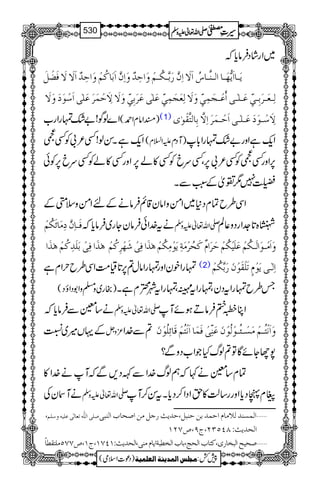 سیرتِ مصطفیٰ صلی اللہ تعالیٰ علیہ وسلم 530
میں ارشاد فرمایا کہ
یَـٰٓاَیُّھَا النَّاسُ اَلَا اِنَّ رَبَّـکُـمْ وَاحِدٌ وَاِنَّ اَبَاکُمْ وَاحِدٌ اَلَا لَا فَضْلَ
لِـعَـرَبِـیٍّ عَـلٰـی اَعْـجَـمِـیٍّ وَلَا لِعَجَمِیٍّ عَلٰی عَرَبِیٍّ وَلَا لِاَحْمَرَ عَلٰی اَسْوَدَ وَلَا
لِاَسْوَدَ عَـلٰـی اَحْـمَـرَ اِلَّا بِالتَّقْوٰی (1) (مسند امام احمد) اے لوگو! بے شک تمہارا رب
ایک ہے اور بے شک تمہارا باپ (آدم علیہ السلام) ایک ہے۔ سن لو! کسی عربی کو کسی عجمی
پر اور کسی عجمی کو کسی عربی پر، کسی سرخ کو کسی کالے پر اور کسی کالے کو کسی سرخ پر کوئی
فضیلت نہیں مگر تقویٰ کے سبب سے۔
اسی طرح تمام دنیا میں امن و امان قائم فرمانے کے لئے امن و سلامتی کے
شہنشاہ تاجدارِ دو عالم صلی اللہ تعالیٰ علیہ وسلم نے یہ خدائی فرمان جاری فرمایا کہ فَـاِنَّ دِمَائَکُمْ
وَاَمْـوَالَـکُمْ عَلَیْکُمْ حَرَامٌ کَحُرْمَۃِ یَوْمِکُمْ ھٰذَا فِیْ شَھْرِکُمْ ھٰذَا فِیْ بَلَدِکُمْ ھٰذَا
اِلٰـی یَوْمِ تَلْقَوْنَ رَبَّکُمْ (2) تمہارا خون اور تمہارا مال تم پر تاقیامت اسی طرح حرام ہے
جس طرح تمہارا یہ دن، تمہارا یہ مہینہ، تمہارا یہ شہر محترم ہے۔ (بخاری و مسلم و ابو داؤد)
اپنا خطبہ ختم فرماتے ہوئے آپ صلی اللہ تعالیٰ علیہ وسلم نے سامعین سے فرمایا کہ
وَاَنْتُـمْ مَسْئُـوْلُوْنَ عَنِّیْ فَمَا اَنْتُمْ قَائِلُوْنَ تم سے خدا عزوجل کے یہاں میری نسبت
پوچھا جائے گا تو تم لوگ کیا جواب دو گے؟
تمام سامعین نے کہا کہ ہم لوگ خدا سے کہہ دیں گے کہ آپ نے خدا کا
پیغام پہنچا دیا اور رسالت کا حق ادا کر دیا۔ یہ سن کر آپ صلی اللہ تعالیٰ علیہ وسلم نے آسمان کی
......المسند للامام احمد بن حنبل،حدیث رجل من اصحاب النبی صلی اللہ تعالیٰ علیہ وسلم،
الحدیث: ۲۳۵۴۸،ج۹،ص۱۲۷
......صحیح البخاری،کتاب الحج،باب الخطبۃ ایام منی،الحدیث:۱۷۴۱،ج۱،ص۵۷۷ملتقطاً
پیش کش: مجلس المدینۃ العلمیۃ (دعوتِ اسلامی)